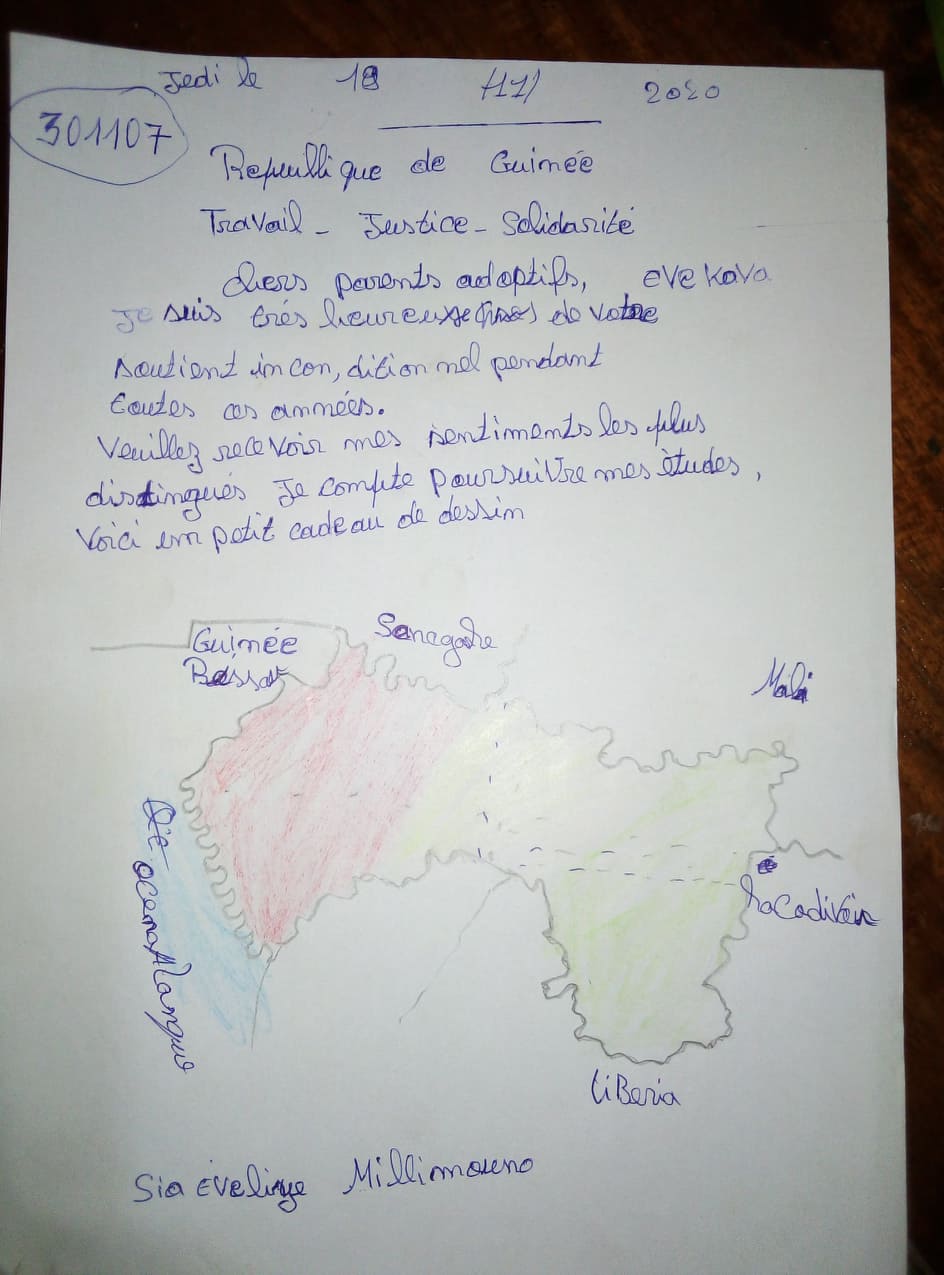 Jedi le 18 /11/ 2020
301107
Republlique de Guimée
Travail - Justice - Solidarité
chers parents adoptifs, eve kava
Je suis trés heureuse de votre
soutient incon, dition nel pendant
toutes ces années.
Veuillez recevoir mes sentiments les plus
distingués Je compte poursuivre mes ètudes,
Voici um petit cadeau de dessin
Guimée
Senegale
Mali
ocena Alangue
liBeria
Sia Eveline Millimouno